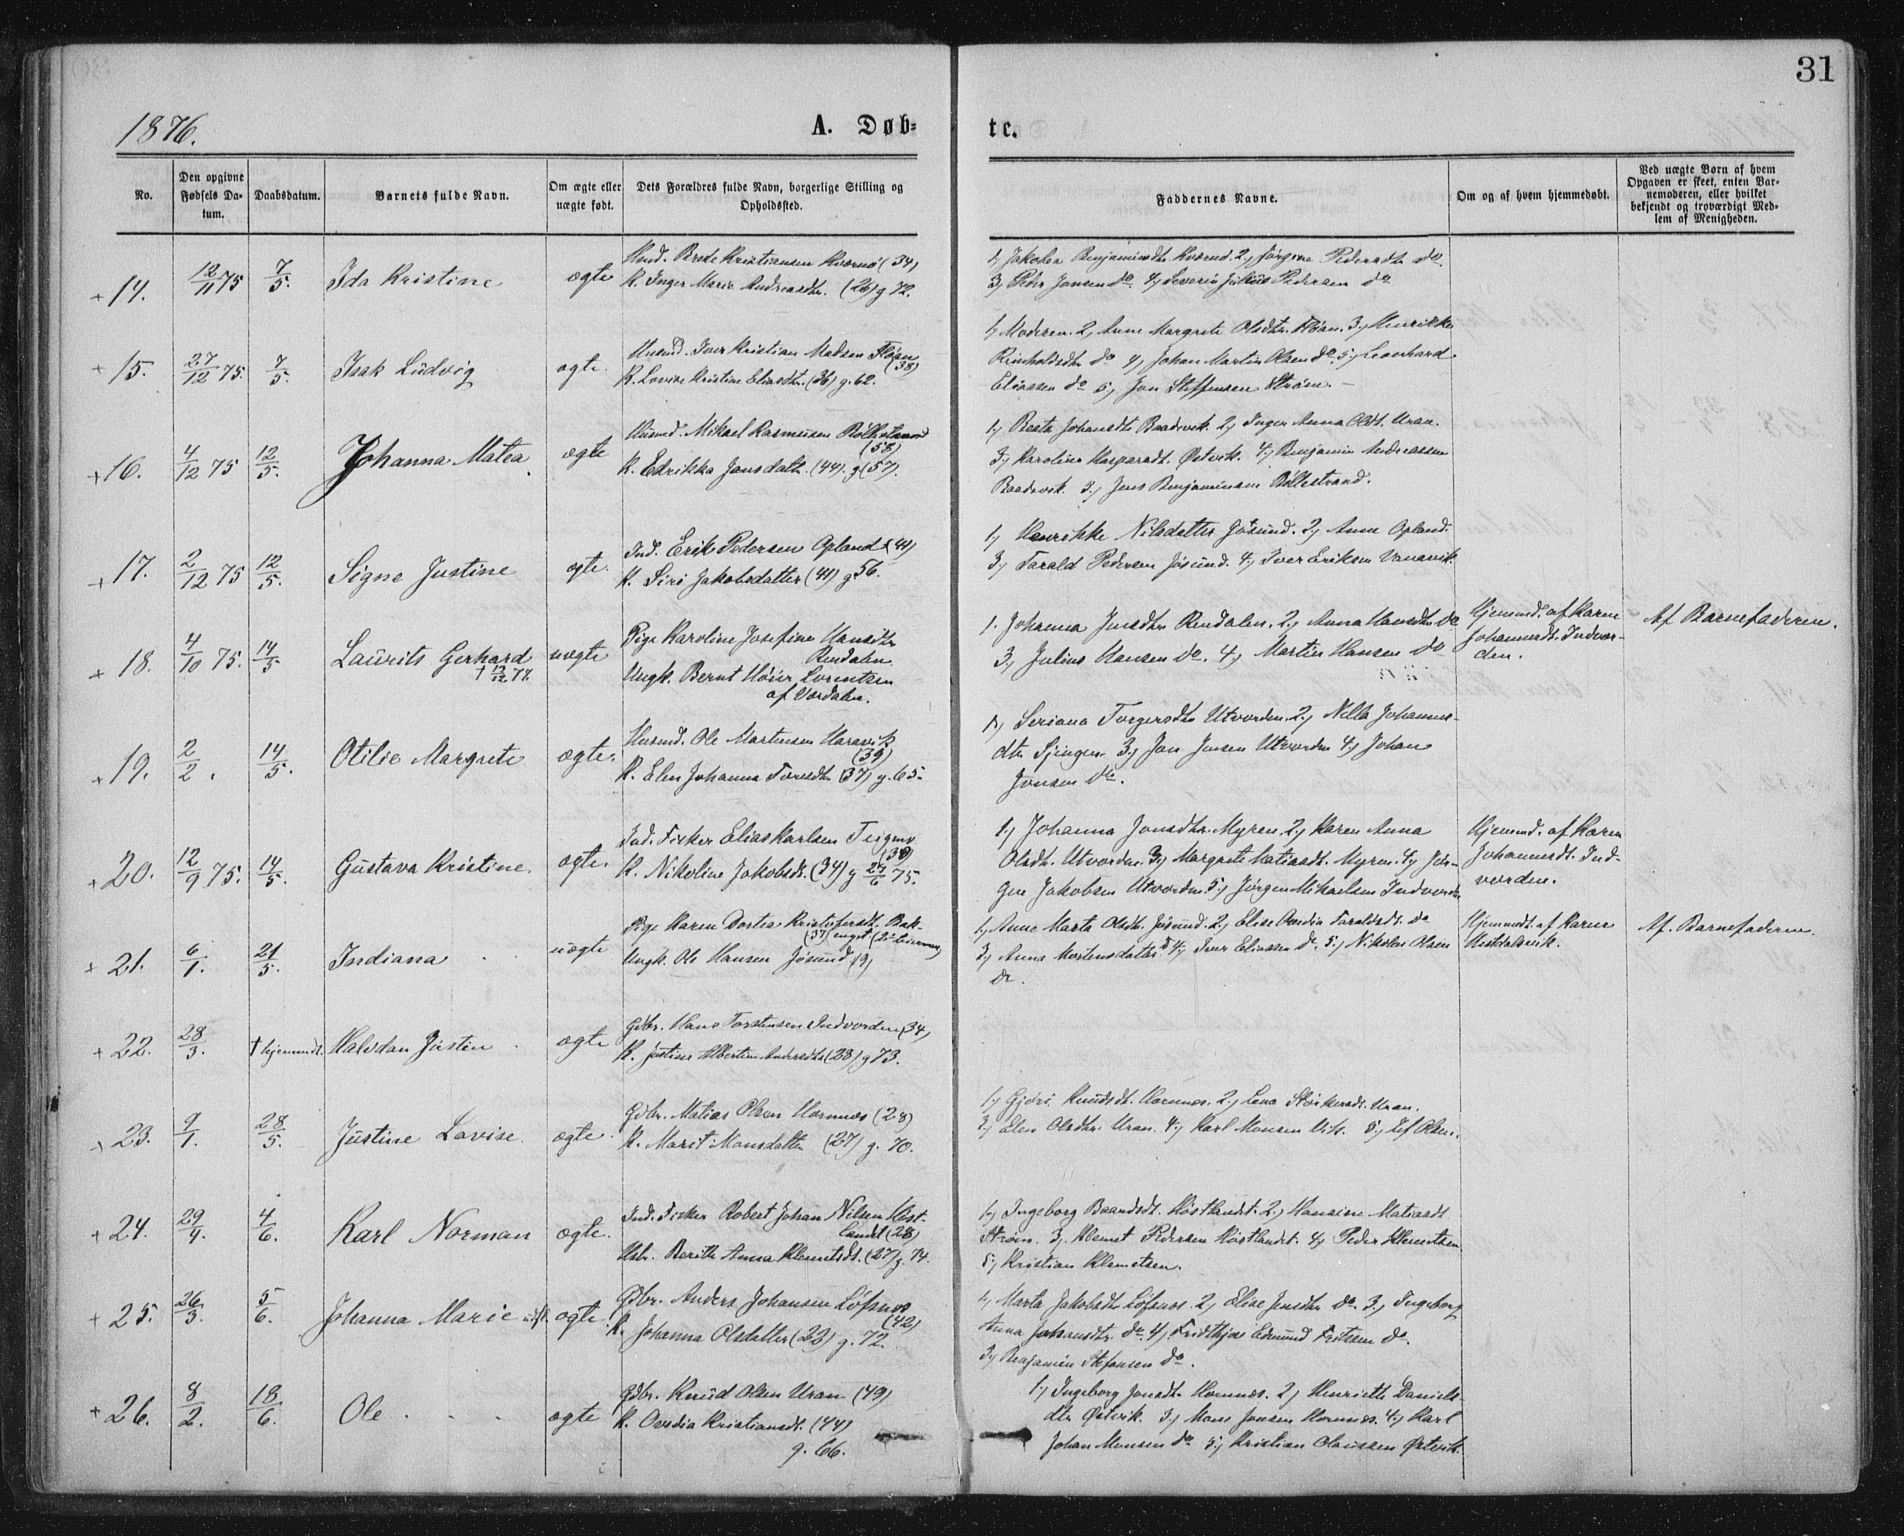 31
1876.
A. Døb-
te.
No.
Den opgivne Fødsels Da-
tum.
Daabsdatum.
Barnets fulde Navn.
Om ægte eller
uægte født.
Dets Forældres fulde Navn, borgerlige Stilling og
Opholdssted.
Faddernes Navne.
Om og af hvem hjemmedøbt.
Ved uægte Børn af hvem
Opgaven er skeet, enten Bar-
nemoderen, eller hvilket
bekjendt og troværdigt Med-
lem af Menigheden.
+ 14. 12/11 75 7/5. Ida Kristine ægte
Kristiansen (34)
K. Inger Marie Andreasdtr. (26) g 72.
3, Peder Jansen do. 4, Severin Julius Pedersen do
+ 15. 27/12 75. 7/5. Isak Ludvig ægte.
Husmd. Iver Kristian Madsen Fløan
(38)
K. Lovise Kristine Eliasdtr. (36) g. 62.
1, Moderen. 2, Anne Margrete Olsdtr. Fløan. 3, Henrikke
Reinholdsdtr do 4, Johan Martin Olsen do 5, Leonhard
Eliassen do 5, Jon Steffensen Strøm. -
+ 16. 4/12 75 12/5. Johanna Matea. ægte
Husmd. Mikael Rasmusen
(58)
K. Edrikka Jansdatter. (44). g (57).
1, Beate Johansdtr Baadsvik. 2, Inger Anna Olsdt. Uran.
3, Karoline Kasparsdt. Østvik. 4, Benjamin Andreassen
Baadsvik. 3, Jens Benjaminsen Bøllestrand.
+ 17. 2/12 75 12/5. Signe Justine ægte.
Ind. Erik Pedersen Opland (41)
K. Siri Jakobsdatter (41) g 56.
1, Henrikke Nilsdatter Jøsund. 2, Anne Opland.
3, Tarald Pedersen Jøsund. 4, Iver Eriksen Vanavik.
+ 18. 4/10 75. 14/5 Laurits Gerhard uægte
† 12/12 77.
Pige Karoline Josefine Hansdtr
Rendalen
Ungk. Bernt Høier Lorentsen
af Værdalen.
1. Johanna Jensdtr Rendalen. 2, Anna Hansdtr do
3, Julius Hansen do. 4, Martin Hansen do
Hjemmd. af Karen
Johannesdt. Indvor-
den.
Af Barnefaderen.
+ 19. 2/2. 14/5. Otilie Margrete ægte.
Husmd. Ole Martinsen Haravik
(39)
K. Elen Johanna Toresdtr (37) g. 65.
1, Seriana Torgersdtr Utvorden. 2, Nella Johannes-
dtr Sjingen 3, Jon Jensen Utvorden 4, Johan
Jonsen do.
+ 20. 12/9 75. 14/5. Gustava Kristine. ægte.
Ind. Fisker Elias Karlsen Teigmo
(38)
K. Nikoline Jakobsdt. (34) g 27/6 75.
1, Johanna Jonsdtr. Myren. 2, Karen Anna
Olsdt. Utvorden. 3, Margrete Matiasdt. Myren. 4, Jør-
gen Jakobsen Utvorden. 5, Jørgen Mikaelsen Indvorden
Hjemmd. af Karen
Johannesdt. Ind-
vorden.
+ 21. 6/1. 21/5. Indiana uægte
Pige Karen Dortea Kristofersdt. Bak-
(37) enget
Ungk. Ole Hansen Jøsund (19)
1, Anne Marta Olsdtr. Jøsund. 2, Elise Ovedia Taraldsdt. do
3, Anna Mortensdatter do 4, Iver Eliassen do. 5, Nikolai Olsen
do.
Hjemmedt. af Karen
Hestdalsvik.
Af Barnefaderen.
+ 22. 28/3. † hjemmdt. Halvdan Justin ægte
Gdbr. Hans Torstensen Indvorden (34)
K. Justine Albertine Andersdtr (28) g 73.
+ 23. 9/1. 28/5. Justine Lovise. ægte.
Gdbr. Matias Olsen Homnes (28)
K. Marit Monsdatter (27) g. 70.
1, Gjøri Knudsdt. Homnes. 2, Lena Størkersdt. Uran.
3, Elen Olsdtr. Uran. 4, Karl Monsen Vik. 5, Elef Olsen.
+ 24. 29/4. 4/6. Karl Norman ægte.
Ind. Fisker Robert Johan Nilsen Høst-
landet (28)
Hsbr. Berith Anna Klemetsdt. (27) g. 74.
1, Ingeborg Baardsdt. Høstlandet. 2, Hansine Matiasdt.
Strøm. 3, Klemet Pedersen Høstlandet. 4, Peder Klemetsen
5, Kristian Klemetsen.
+ 25. 26/3. 5/6. Johanna Marie ægte.
Gdbr. Anders Johansen Løfsnes
(42)
K. Johanna Olsdatter (23) g. 72.
1, Marta Jakobsdtr Løfsnes. 2, Elise Jensdtr do. 3, Ingeborg
Anna Johansdtr. do. 4, Fridthjof Edmund Fritsen do.
5, Benjamin Stefansen do.
+ 26. 8/2. 18/6. Ole ægte
Gdbr. Knud Olsen Uran (49)
K. Ovedia Kristiansdt. (44)
g. 66.
1, Ingeborg Jonsdt. Homnes. 2, Henriette Daniels-
dtr Østvik. 3, Mons Jensen Homnes. 4, Karl
Johan Monsen do 5, Kristian Claussen Østvik.